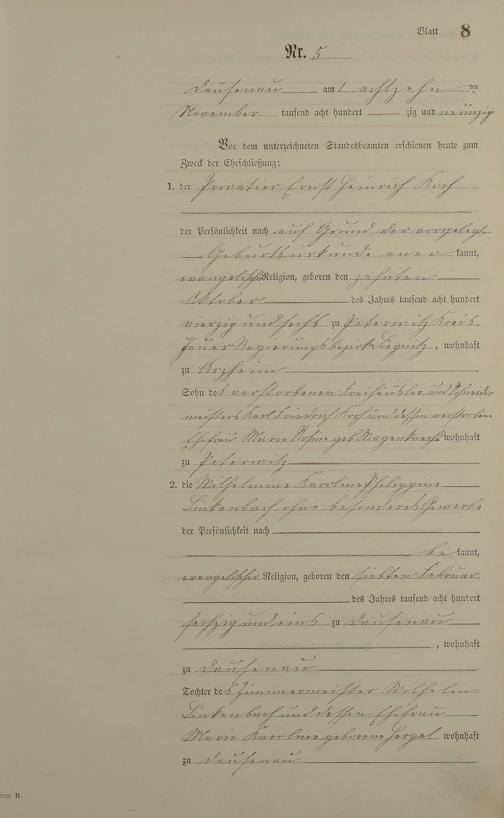 Blatt 8
Nr. 5
Dausenau am achtzehn ten
November tausend acht hundert zig und neunzig
Vor dem unterzeichneten Standesbeamten erschienen heute zum
Zweck der Eheschließung:
1. der Privatier Ernst Heinrich Koch
der Persönlichkeit nach auf Grund der vorgelegten
Geburtsurkunde aner kannt,
evangelischer Religion, geboren den zehnten
Oktober des Jahres tausend acht hundert
vierzig und sechs zu Peterwitz Kreis
Jauer Regierungsbezirk Liegnitz, wohnhaft
zu Arzheim
Sohn des verstorbenen Freihäusler und Schneider
meisters Karl Friedrich Koch und dessen verstorbene
Ehefrau Marie Rosine geb. Wagenknecht wohnhaft
zu Peterwitz
2. die Wilhelmine Karoline Philippine
Linkenbach ohne besonderes Gewerbe
der Persönlichkeit nach
be kannt,
evangelischer Religion, geboren den siebten Februar
des Jahres tausend acht hundert
sechzig und eins zu Dausenau
, wohnhaft
zu Dausenau
Tochter des Zimmermeister Wilhelm
Linkenbach und dessen Ehefrau
Marie Karoline geborene wohnhaft
zu Dausenau
B.